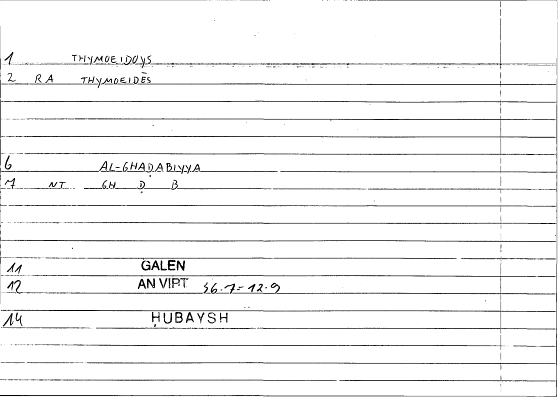 1 THYMOEIDOYS
2 RA THYMOEIDÈS
6 AL-GHAḌABIYYA
7 NT GH Ḍ B
11 GALEN
12 AN VIRT 46.7=12.9
14 ḤUBAYSH